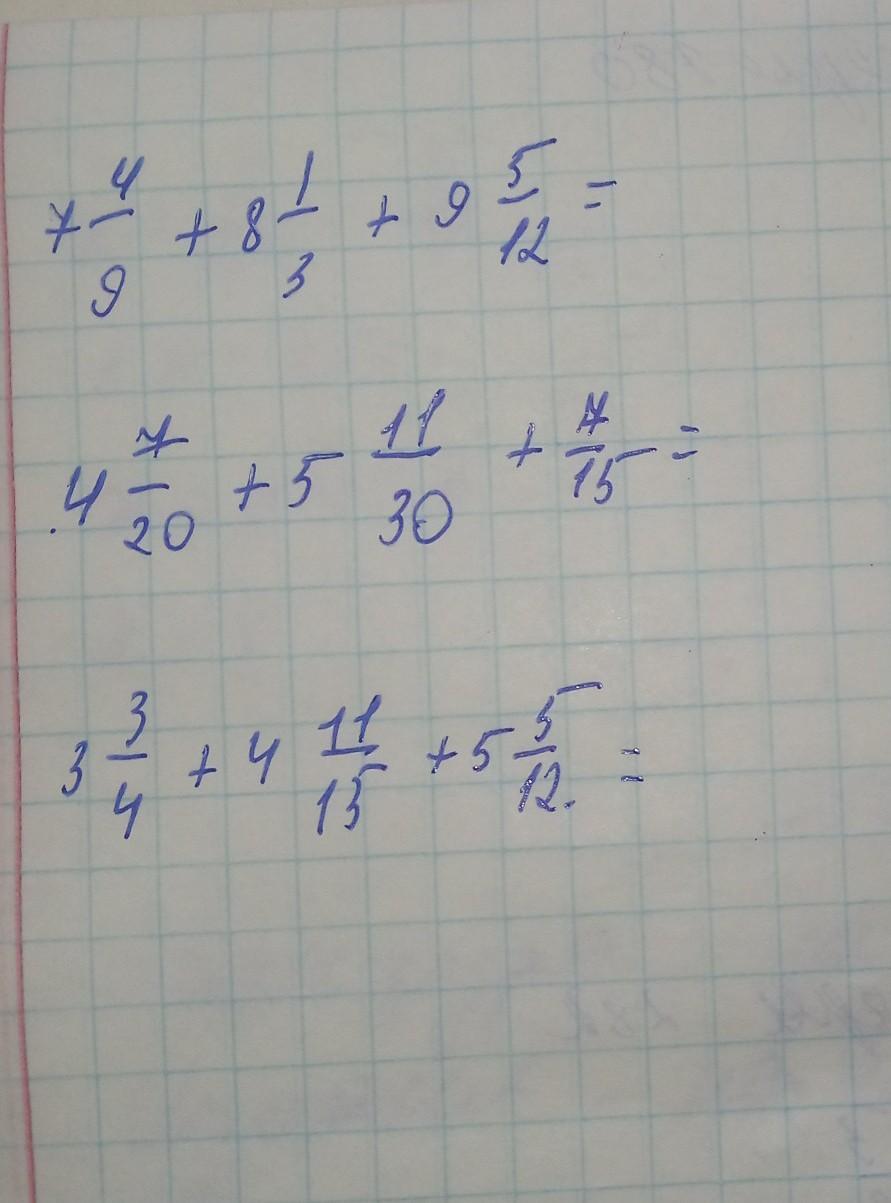 7 4/9 + 8 1/3 + 9 5/12 =
4 7/20 + 5 11/30 + 7/15 =
3 3/4 + 4 11/15 + 5 5/12. =